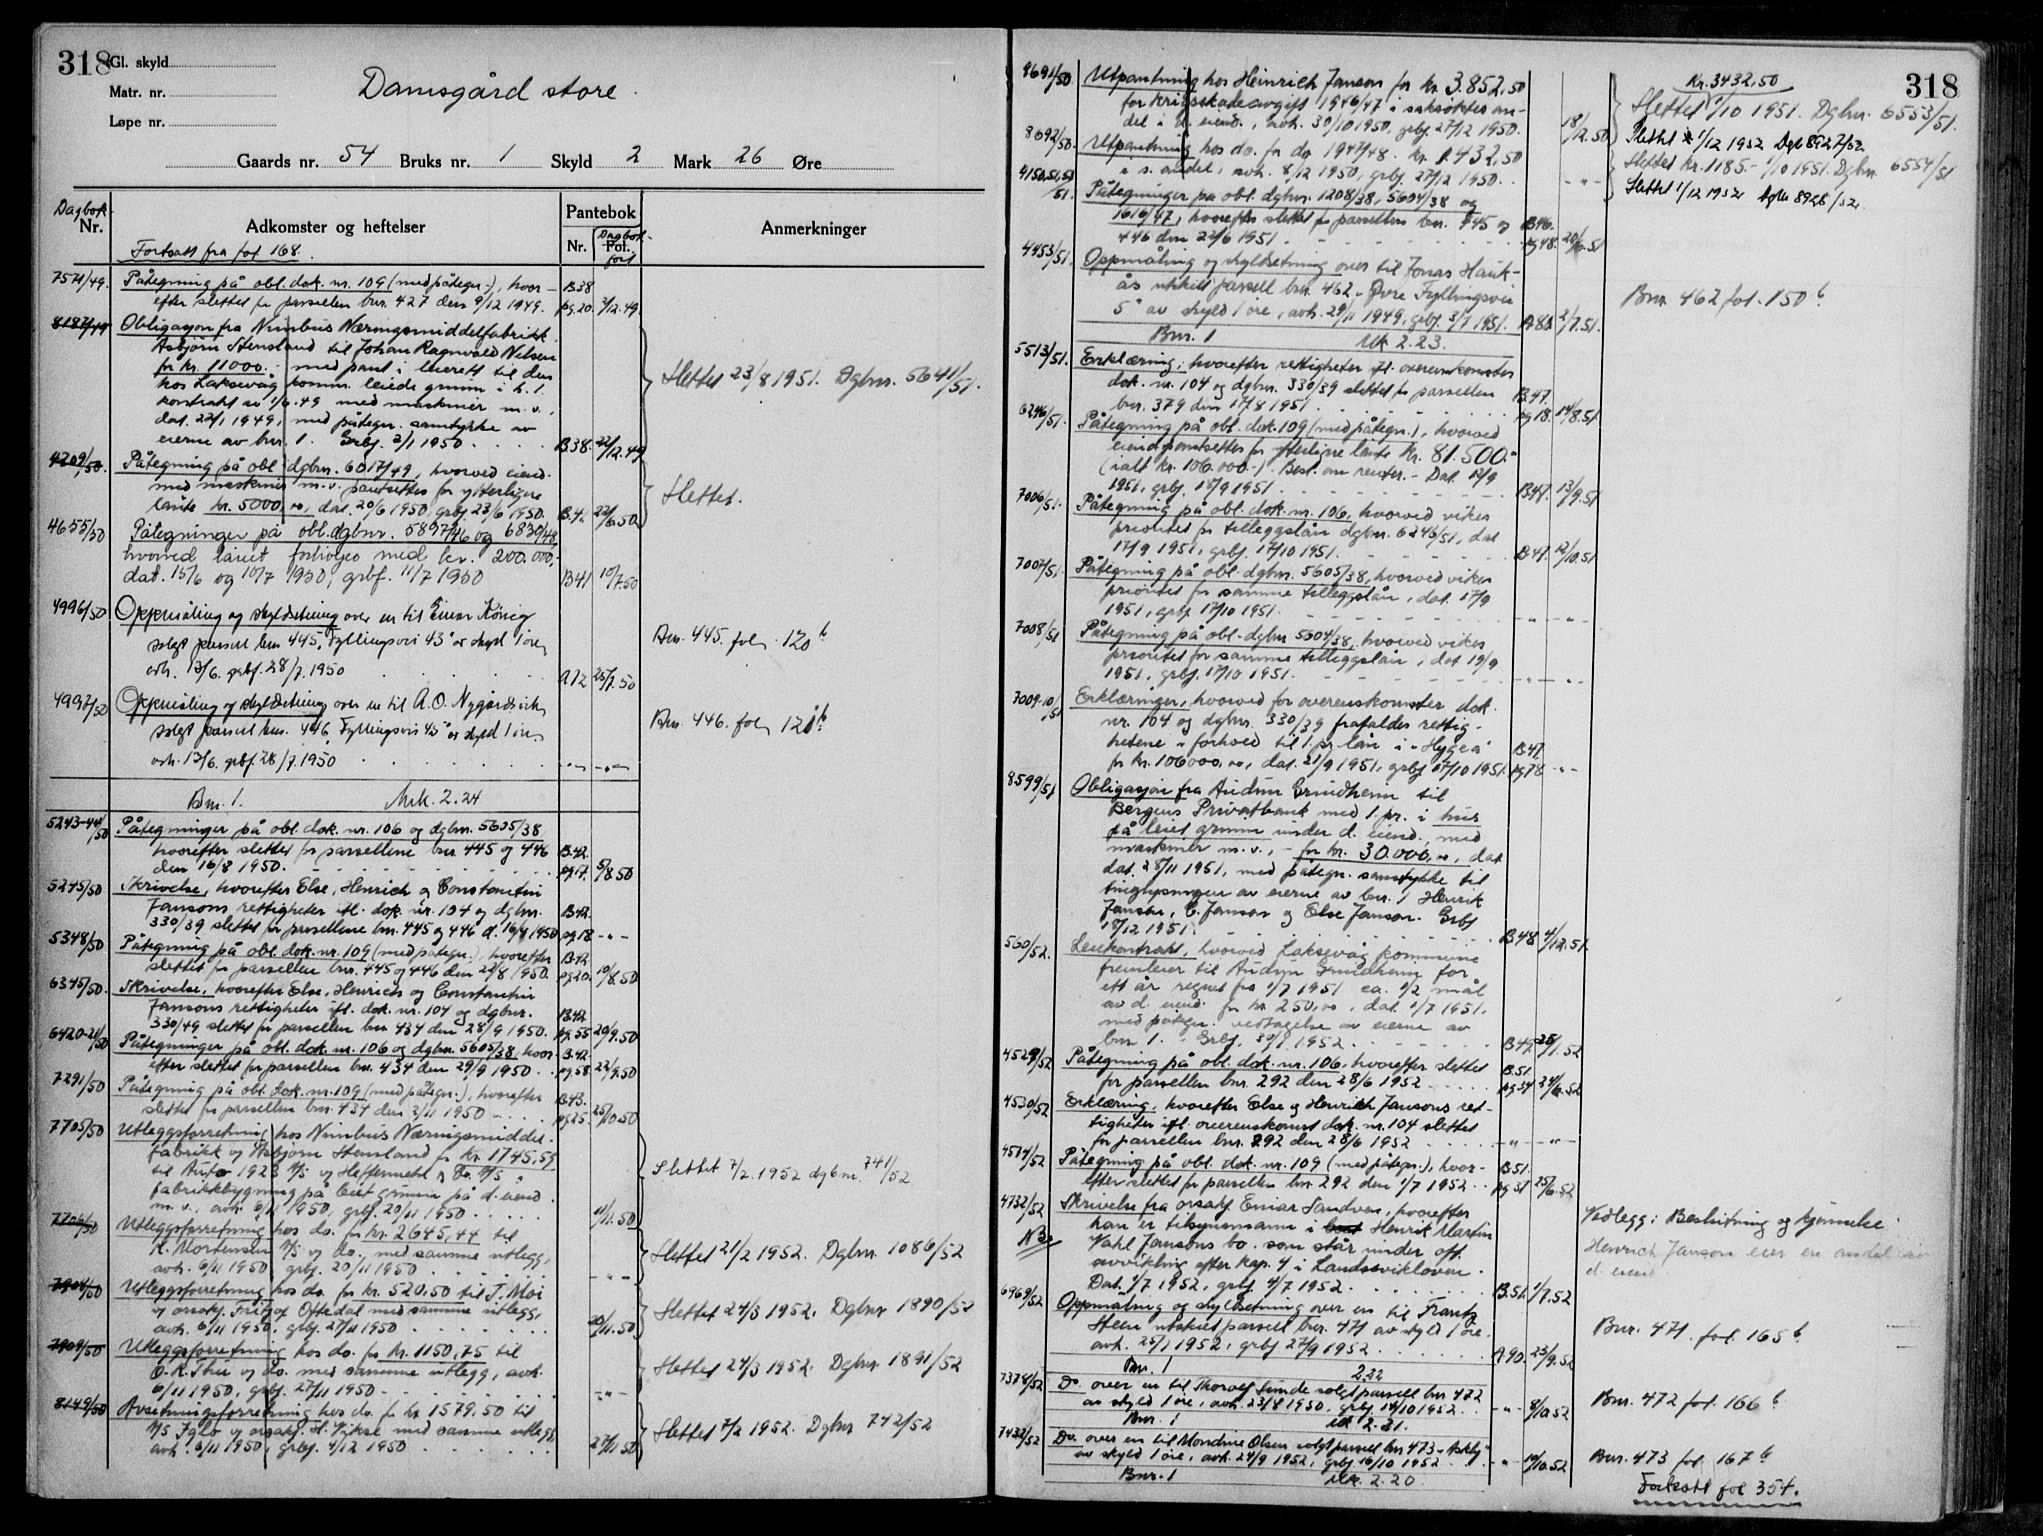 318
Gl. skyld
Matr. nr.
Løpe nr.
Damsgård store.
Gaards nr. 54 Bruks nr. 1 Skyld 2 Mark 26 Øre
Dagbok Nr.
Adkomster og heftelser
Pantebok
Nr. Fol.
Dagbok-ført
Anmerkninger
Fortsatt fra fol 168.
7571/49. Påtegning på obl. dok. nr. 109 (med påtegn.), hvor-
efter slettet for parsellen bnr. 427 den 9/12 1949. B38 pg. 20. 3/12.49
8187/49 Obligasjon fra Nimbus Næringsmiddelfabrikk
Asbjørn Stensland til Johan Ragnvald Nilsen
for kr. 11000.- med pant i leierett til den
hos Laksevåg komm. leiede grunn i h. t.
kontrakt av 1/6.49 med maskiner m.v.,
dat. 22/1 1949, med påtegn. samtykke av
eierne av bnr. 1. Grbf. 2/1 1950 B38. 22/12.49
Slettet 23/8 1951. Dgbnr. 5641/51.
4209/50. Påtegning på obl. dgbnr. 6017/49, hvorved eiend.
med maskiner m.v. pantsettes for ytterligere
lånte kr. 5000,00, dat. 20/6 1950, grbf. 23/6 1950. B.41. 22/6.50
Slettet.
4655/50 Påtegninger på obl. dgbnr. 5897/46 og 6830/48,
hvorved lånet forhøyes med kr. 200.000,-
dat. 15/6 og 10/7 1950, grbf. 11/7 1950 B41 10/7.50
4996/50 Oppmåling og skyldsetning over en til Einar König
solgt parsell bnr. 445, "Fyllingsvei 43" av skyld 1 øre,
avh. 13/6. grbf. 28/7.1950 A72 25/7.50
Bnr. 445. fol. 120 b
4997/50 Oppmåling og skyldsetning over en til A.O. Nygårdsvik
solgt parsell bnr. 446 "Fyllingsvei 45" av skyld 1 øre,
avh. 13/6. grbf. 28/7.1950 -"- -"-
Bnr. 446. fol. 121 b
Bnr. 1. Mrk. 2.24
5243-44/50 Påtegninger på obl. dok. nr. 106 og dgbnr. 5605/38,
hvorefter slettet for parsellene bnr 445 og 446
den 16/8 1950. B.42. pg.17. 5/8.50
5245/50 Skrivelse, hvorefter Else, Henrich og Constantin
Jansons rettigheter ifl. dok. nr. 104 og dgbnr.
330/39 slettet for parsellene bnr. 445 og 446 d. 16/8 1950 B42. pg.18. -"-
5348/50 Påtegning på obl. dok. nr. 109 (med påtegn.), hvorefter
slettet for parsellen bnr. 445 og 446 den 22/8 1950. B42. pg.20. 10/8.50
6345/50. Skrivelse, hvorefter Else, Henrich og Constantin
Jansons rettigheter ifl. dok. nr. 104 og dgbnr.
330/49 slettet for parsellen bnr 434 den 28/9 1950. B42 pg.55 20/9.50
6420-21/50 Påtegninger på obl. dok. nr. 106 og dgbnr. 5605/38 hvor-
efter slettet for parsellen bnr. 434 den 29/9 1950. B.42. pg.58. 22/9.50
7291/50 Påtegning på obl. dok. nr. 109 (med påtegn.), hvorefter
slettet for parsellen bnr. 434 den 2/11 1950 B43. pg25. 25/10.50
7705/50 Utleggsforretning hos Nimbus Næringsmiddel-
fabrikk v/ Asbjørn Stensland for kr. 1745,55
til Auto 1923 A/S og
fabrikkbygning på leiet grunn på d. eiend.
m.v., avh. 6/11 1950, grbf. 20/11 1950 11/11.50
Slettet 7/2.1952 dgbnr. 741/52
7706/50 Utleggsforretning hos do. for kr. 2645,44 til
R. Mortensen A/S og do., med samme utlegg,
avh. 6/11 1950, grbf. 20/11 1950 -"-
Slettet 21/2 1952. Dgbnr. 1086/52
7904/50 Utleggsforretning hos do. for kr. 520.50 til T. Moi
v/ orsakf. Fritjof Oftedal med samme utlegg,
avh. 6/11 1950, grbf. 27/11 1950 20/11.50
Slettet 24/3 1952. Dgbnr 1890/52
7909/50 Utleggsforretning hos do. for kr. 1150,75 til
O.K. Thu og do. med samme utlegg, avh.
6/11 1950, grbf. 27/11 1950 -"-
Slettet 24/3 1952. Dgbnr. 1891/52
8149/50 Avsetningsforretning hos do. for kr 1579.50 til
A/S Iglo v/ orsakf. H. Vikse med samme utlegg,
avh. 6/11 1950, grbf. 4/12 1950 27/11.50
Slettet 7/2 1952. Dgbnr 742/52
318
8691/50 Utpantning hos Heinrich Janson for kr. 3.852,50
for krigsskadeavgift 1946/47 i saksøktes an-
del i d. eiend., avh. 30/10 1950, grbf. 27/12 1950. 18/12.50
Kr. 3432,50
Slettet 1/10 1951. Dgbnr. 6553/51.
Slettet 1/12 1952 Dgb 8927/52
8692/50. Utpantning hos do. for do 1947/48. kr. 1.432,50
i s. andel, avh. 8/12 1950, grbf. 27/12 1950. -"-
Slettet kr. 1185.- 1/10 1951. Dgbnr. 6554/51
Slettet 1/12 1952 Dgbr 8928/52
4150,51,52/51. Påtegninger på obl. dgbnr. 1208/38, 5604/38 og
1616/47, hvorefter slettet for parsellen bnr. 445 og
446 den 22/6 1951. B46. pg48. 20/6.51
4453/51. Oppmåling og skyldsetning over til Jonas Hauk-
ås utskilt parsell bnr. 462 "Øvre Fyllingsvei
5" av skyld 1 øre, avh. 29/11 1949, grbf. 3/7 1951. A.81. 2/7.51.
Bnr. 462 fol. 150 b
Bnr. 1 Mk 2.23.
5513/51. Erklæring, hvorefter rettigheter ifl. overenskomster
dok. nr. 104 og dgbnr. 330/39 slettet for parsellen
bnr. 379 den 17/8 1951. B47. pg18. 14/8.51.
6246/51. Påtegning på obl. dok. 109 (med påtegn.), hvorved
eiend. pantsettes for ytterligere lånte kr. 81.500.-
(ialt kr. 106.000.-). Best. om renter.- Dat. 12/9
1951, grbf. 18/9 1951. B47. 13/9.51
7006/51. Påtegning på obl. dok. nr. 106, hvorved vikes
prioritet for tilleggslån dgbnr. 6246/51, dat
17/9 1951, grbf. 17/10 1951. B47. 12/10.51.
7007/51. Påtegning på obl. dgbnr. 5605/38, hvorved vikes
prioritet for samme tilleggslån, dat. 17/9
1951, grbf. 17/10 1951. -"- -"-
7008/51 Påtegning på obl. dgbnr 5604/38, hvorved vikes
prioritet for samme tilleggslån, dat. 19/9
1951, grbf. 17/10 1951. -"- -"-
7009-10/51 Erklæringer, hvorved for overenskomster dok.
nr. 104 og dgbnr. 330/39 frafaldes rettig-
hetene i forhold til 1. pr. lån i "Hygea"
for kr. 106000,00, dat. 21/9 1951, grbf. 17/10 1951. B47. pg78 -"-
8599/51 Obligasjon fra Audun Grindheim til
Bergens Privatbank med 1. pr. i hus
på leiet grunn under d. eiend., med
maskiner m.v., - for kr. 30.000,00, dat
dat. 28/11 1951, med påtegn. samtykke til
tinglysningen av eierne av bnr. 1 Henrik
Janson, C. Janson og Else Janson. Grbf
18/12 1951. B48 4/12.51.
560/52. Leiekontrakt, hvorved Laksevåg kommune
fremleier til Audun Grindheim for
ett år regnet fra 1/7 1951 ca. 1/2 mål
av d. eiend. for kr 250,00, dat. 1/7 1951,
med påtegn. vedtagelse av eierne av
bnr 1. - Grbf. 30/1 1952. B49. 25/1.52
4529/52 Påtegning på obl. dok. nr. 106, hvorefter slettet
for parsellen bnr. 292 den 28/6 1952 B51. pg34 24/6.52
4530/52 Erklæring, hvorefter Else og Henrich Jansons ret-
tigheter ifl. overenskomst dok. nr. 104 slettet
for parsellen bnr. 292 den 28/6 1952 -"- -"-
4574/52 Påtegning på obl. dok. nr. 109 (med påtegn.), hvor-
efter slettet for parsellen bnr. 292 den 1/7 1952 B51. pg31 25/6.52
4732/52 Skrivelse fra orsakf. Einar Sandven, hvorefter
N3. han er tilsynsmann i Henrik Martin
Vahl Jansons bo. som står under off.
avvikling efter kap. 4 i Landssvikloven.
Dat. 1/7 1952, grbf. 4/7 1952. B.51. 1/7.52
Vedlegg: Beslutning og kjennelse.
Henrich Janson eier en andel av
d. eiend
6969/52 Oppmåling og skyldsetning over en til Frantz
Steen utskilt parsell bnr. 471 av skyld 1 øre.
avh. 25/1 1952, grbf. 27/9 1952. A90. 23/9.52
Bnr. 471. fol. 165 b.
Bnr. 1 2.22
7378/52 Do. over en til Thorolf Sunde solgt parsell bnr 472
av skyld 1 øre, avh. 23/8 1950, grbf. 14/10 1952. -"- 8/10.52
Bnr. 472 fol. 166 b
Bnr. 1 Mk 2.21.
7432/52 Do. over en til Mondrine Olsen solgt parsell bnr 473 "Askly"
av skyld 1 øre, avh. 24/9 1952, grbf. 16/10 1952. -"- 10/10.52
Bnr. 473 fol. 167 b
Bnr. 1 Mk. 2.20
Fortsatt fol 354.